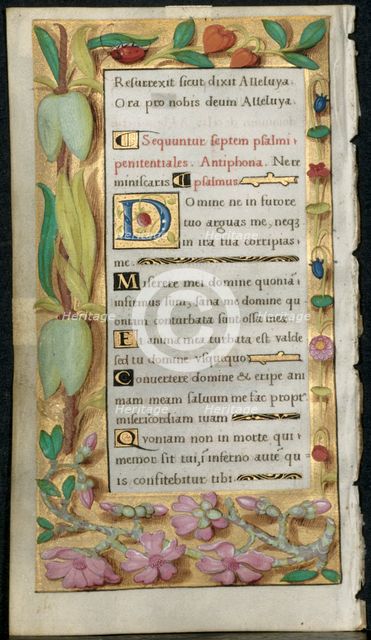 Resurrexit sicut dixit Alleluya.
Ora pro nobis deum Alleluya.
Sequuntur septem psalmi
penitentiales. Antiphona. Nere
miniscaris psalmus
Domine ne in furore
tuo arguas me, neqz
in ira tua corripias
me.
Miserere mei domine quoniã
infirmus sum, sana me domine qu
oniam conturbata sunt ossa mea.
Et anima mea turbata est valde
sed tu domine vsquequo
Convertere domine & eripe ani
mam meam saluum me fac propt
misericordiam tuam
Quoniam non in morte qui
memor sit tui, ĩ inferno autẽ qu
is confitebitur tibi